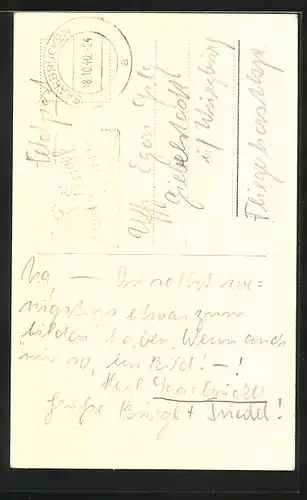 SAARBRÜCKEN
18.10.40.-24
a
Feldpost
Uffz Egon
Giebelstadt
i/ Würzburg
Fliegerhorstkp.
Na, — Du sollst we=
nigstens etwas zum
bilden haben. Wenn auch
"nur so, im Bild! — !
Heil Saarbrücken
Grüße Birgel + Friedel!